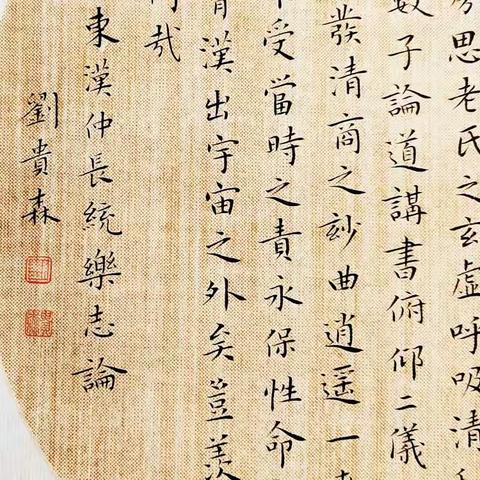 思老氏之玄虛呼吸清
數子論道講書俯仰二儀
發清商之玅曲逍遥一
受當時之責永保性命
漢出宇宙之外矣豈羨
哉
東漢仲長統樂志論
劉貴森